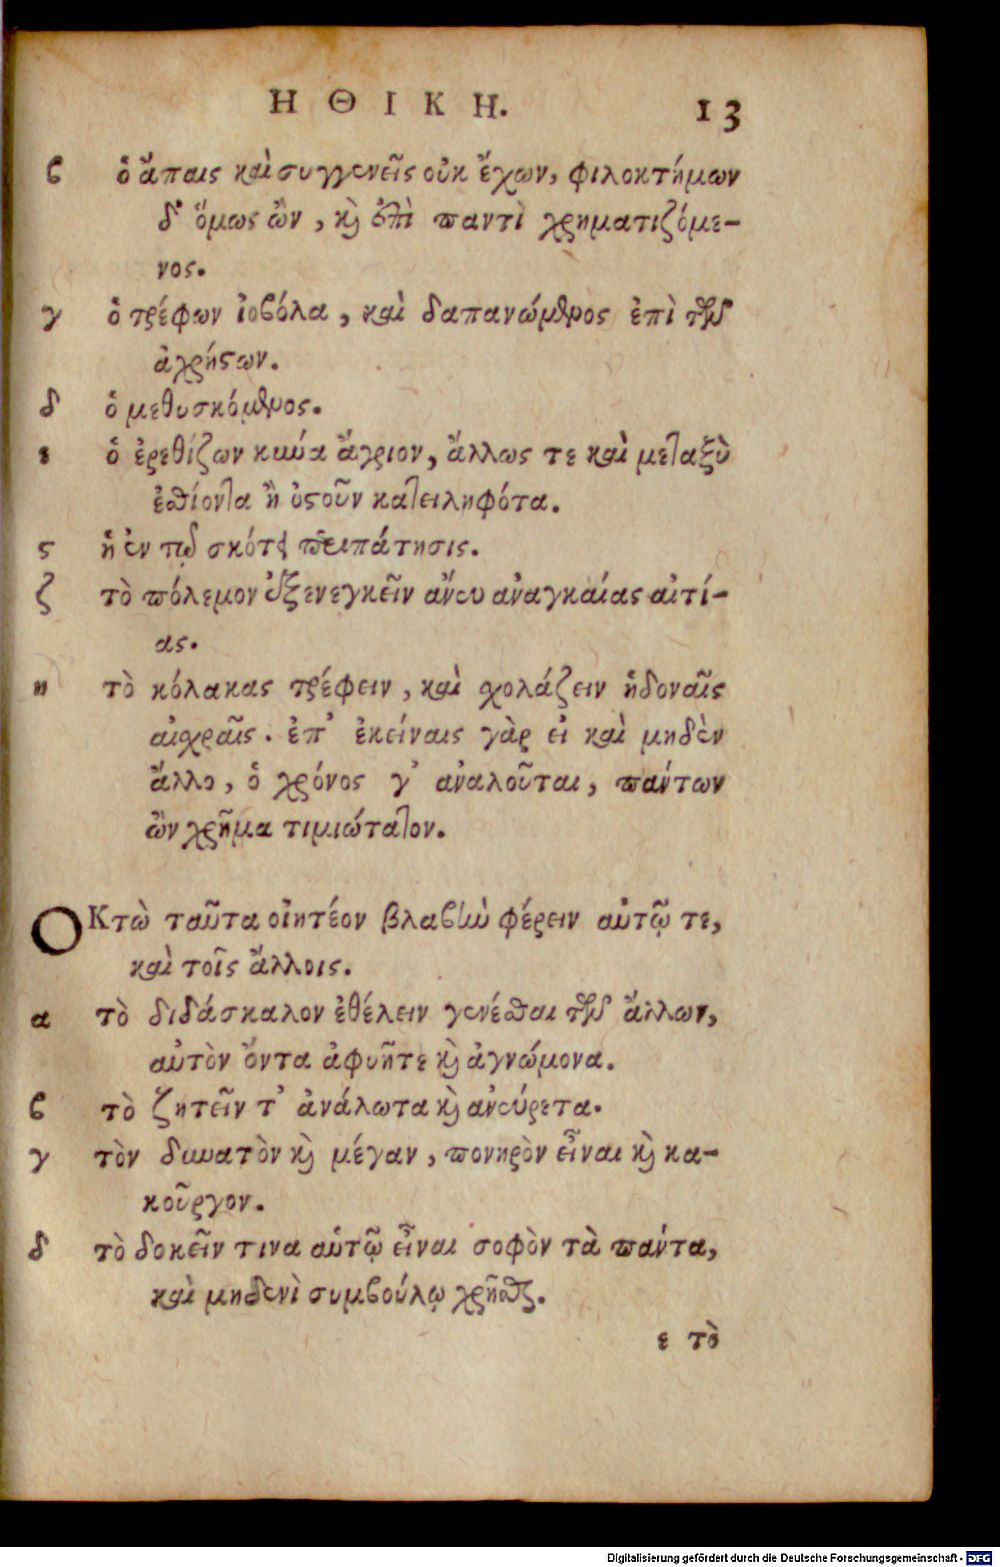 ΗΘΙΚΗ. 13
ϐ ὁ ἄπαις καὶ συγγενεῖς οὐκ ἔχων, φιλοκτήμων
δ' ὅμως ὢν, κὶ ἐπὶ παντὶ χρηματιζόμε-
νος.
γ ὁ τρέφων ἰοϐόλα, καὶ δαπανώμενος ἐπὶ τῶν
ἀχρήστων.
δ ὁ μεθυσκόμενος.
ε ὁ ἐρεθίζων κύνα ἄγριον, ἄλλως τε καὶ μεταξὺ
ἐσθίοντα ἢ ὀστοῦν κατειληφότα.
ϛ ἡ ἐν τῷ σκότει περιπάτησις.
ζ τὸ πόλεμον ἐξενεγκεῖν ἄνευ ἀναγκαίας αἰτί-
ας.
η τὸ κόλακας τρέφειν, καὶ σχολάζειν ἡδοναῖς
αἰσχραῖς. ἐπ' ἐκείναις γὰρ εἰ καὶ μηδὲν
ἄλλο, ὁ χρόνος γ' ἀναλοῦται, πάντων
ὢν χρῆμα τιμιώτατον.
ΟΚτὼ ταῦτα οἰητέον βλαϐὴν φέρειν αὑτῷ τε,
καὶ τοῖς ἄλλοις.
α τὸ διδάσκαλον ἐθέλειν γενέσθαι τῶν ἄλλων,
αὐτὸν ὄντα ἀφυῆτε κὶ ἀγνώμονα.
ϐ τὸ ζητεῖν τ' ἀνάλωτα κὶ ἀνεύρετα.
γ τὸν δυνατὸν κὶ μέγαν, πονηρὸν εἶναι κὶ κα-
κοῦργον.
δ τὸ δοκεῖν τινα αὑτῷ εἶναι σοφὸν τὰ πάντα,
καὶ μηδενὶ συμϐούλῳ χρῆσθαι.
ε τὸ
Digitalisierung gefördert durch die Deutsche Forschungsgemeinschaft - DFG